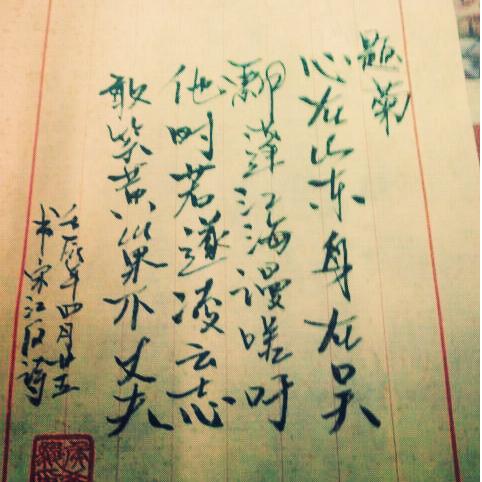 题菊
心在山东身在吴
飘蓬江海谩嗟吁
他时若遂凌云志
敢笑黄巢不丈夫
壬辰年四月廿五
书宋江反诗